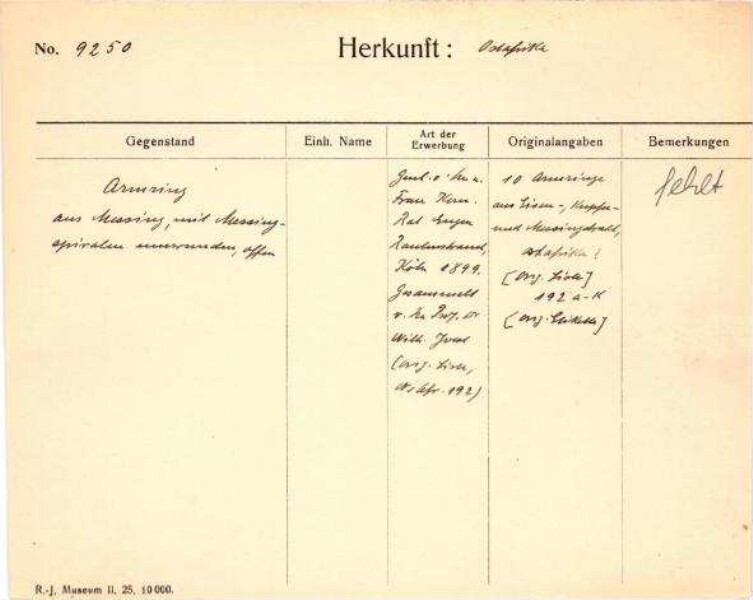 No. 9250
Herkunft: Ostafrika
Gegenstand
Einh. Name
Art der
Erwerbung
Originalangaben
Bemerkungen
Armring
aus Messing, mit Messing-
spiralen umwunden, offen
Frau Kom.
Rat Eugen
Rautenstrauch,
Köln 1899.
Gesammelt
v. Hn Prof. Dr
Wilh. Joest
(orig. Liste,
192)
10 Armringe
aus Eisen-, Kupfer-
und Messingdraht,
Ostafrika?
[orig. Liste]
192 a-K
[orig. Etikette]
fehlt
R.-J. Museum II. 25. 10 000.